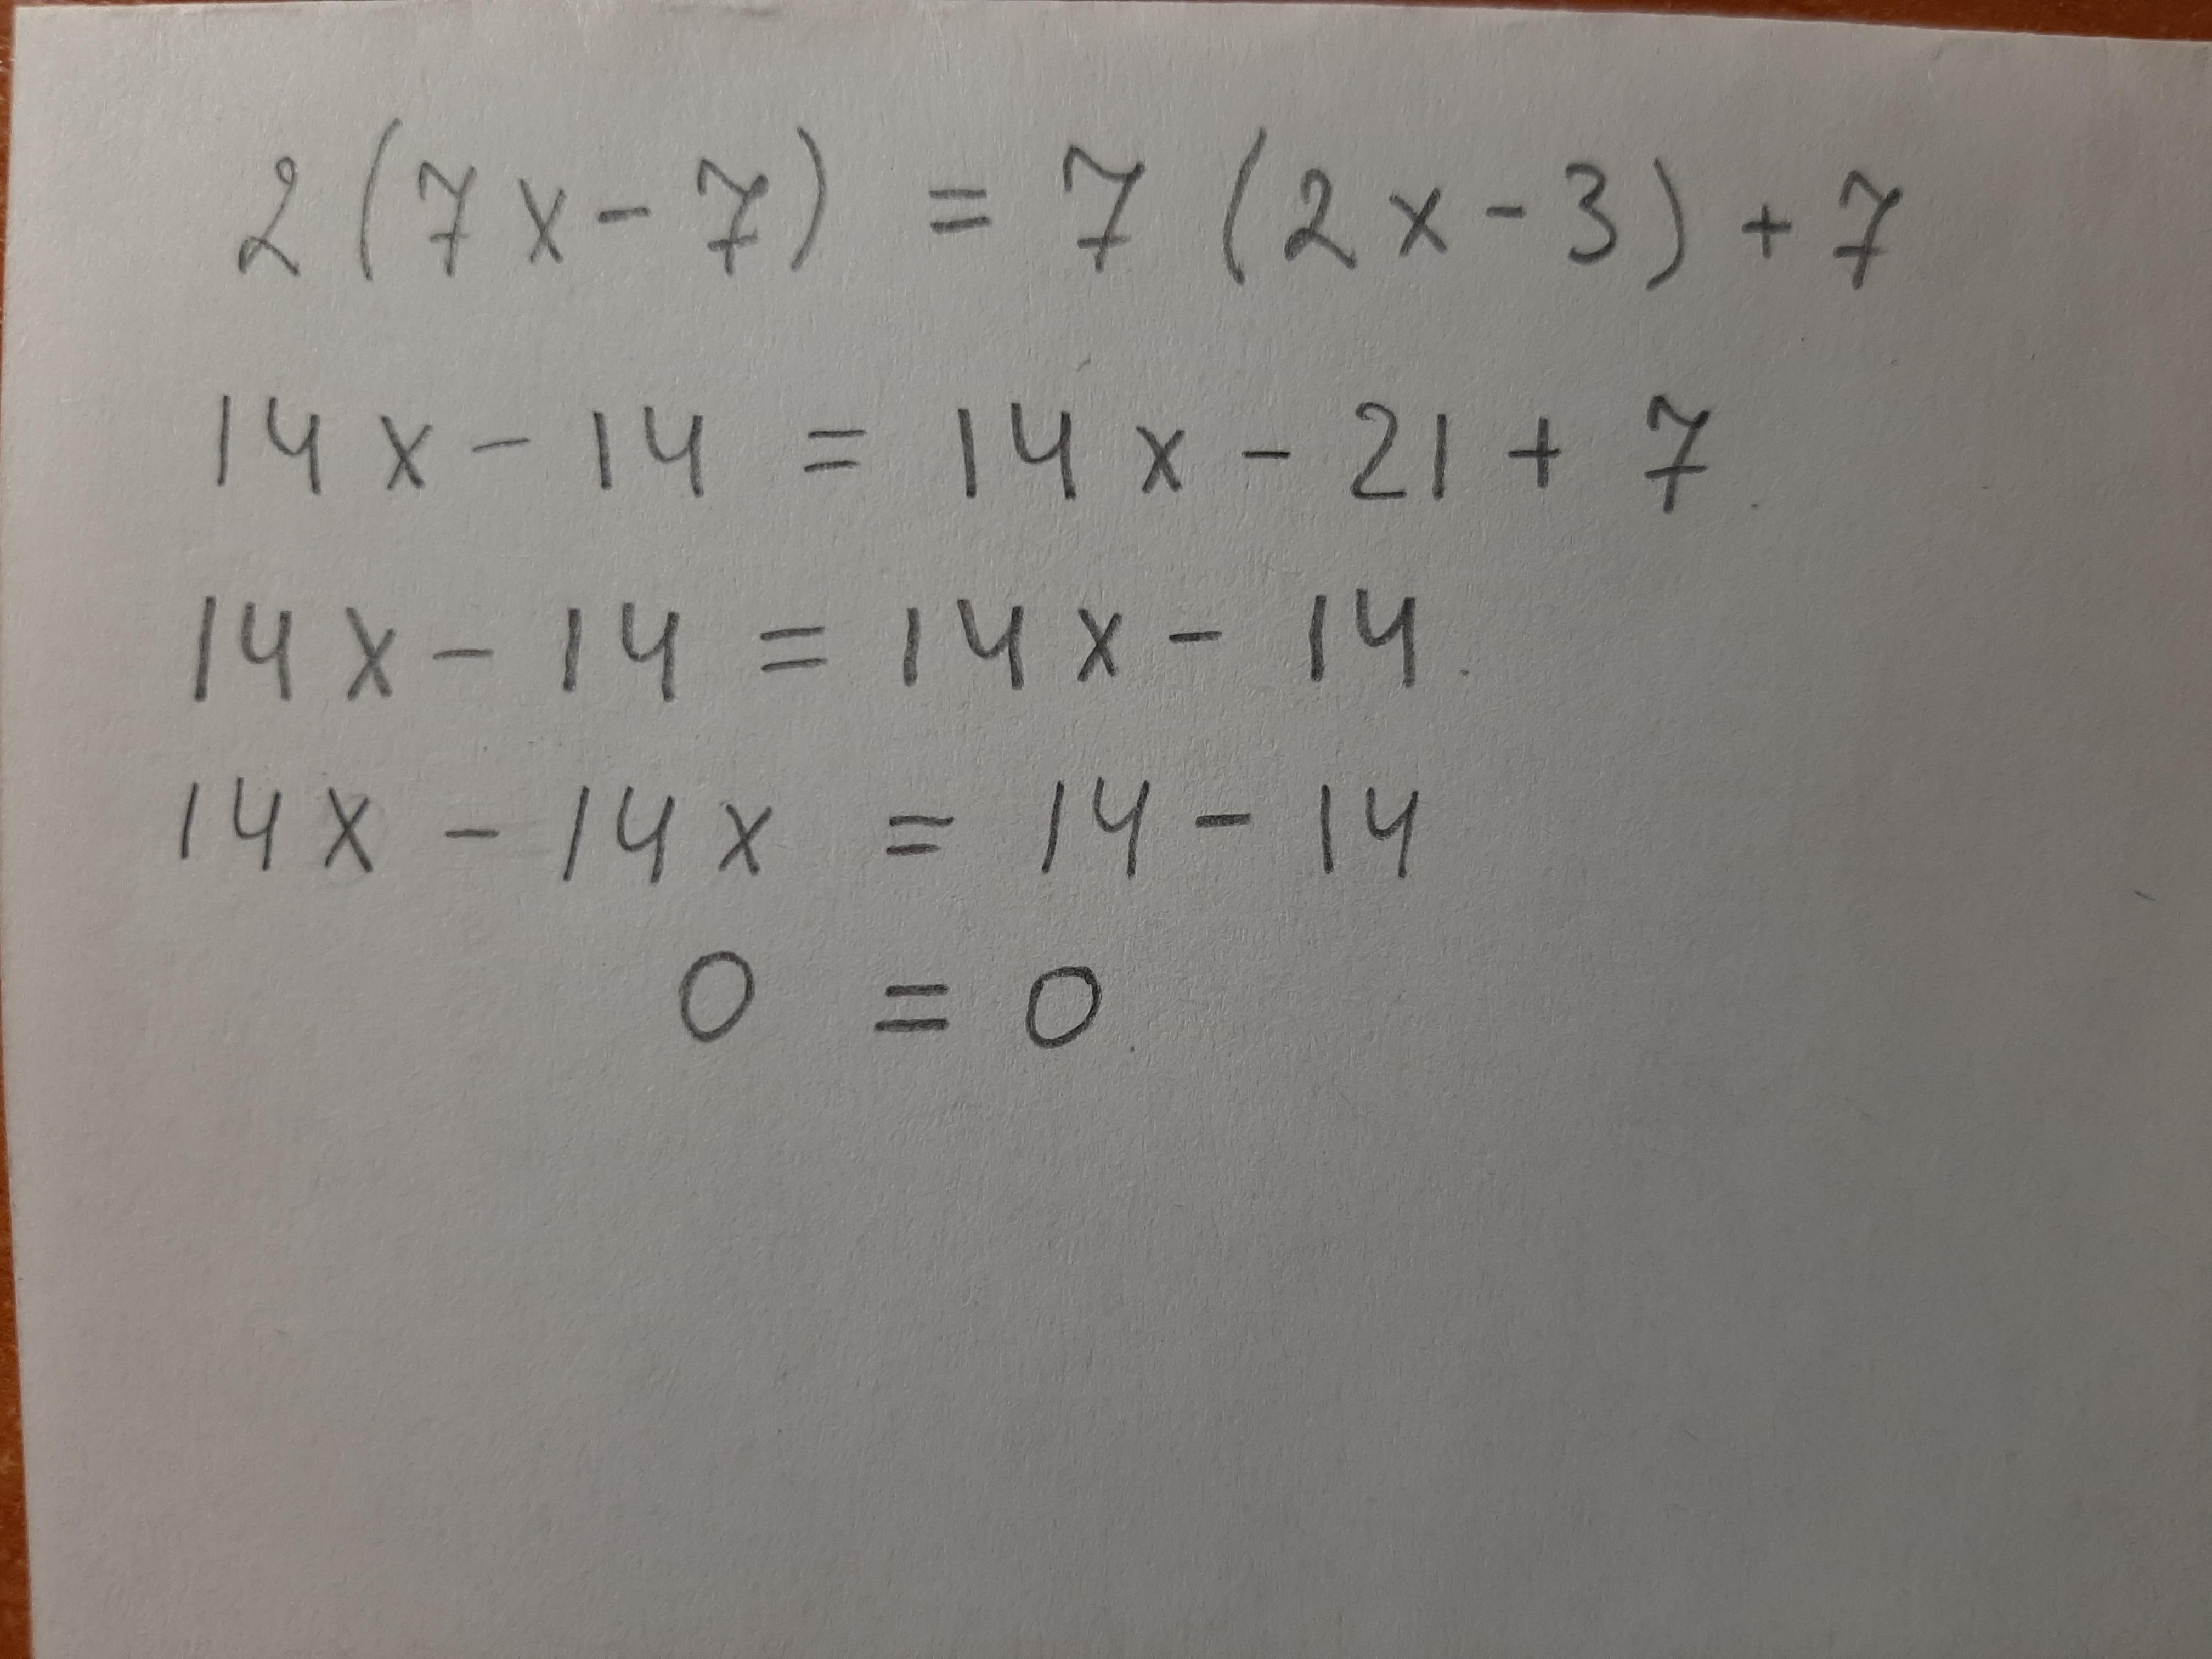 2(7x-7) = 7(2x-3)+7
14x-14 = 14x-21+7
14x-14 = 14x-14
14x-14x = 14-14
0 = 0